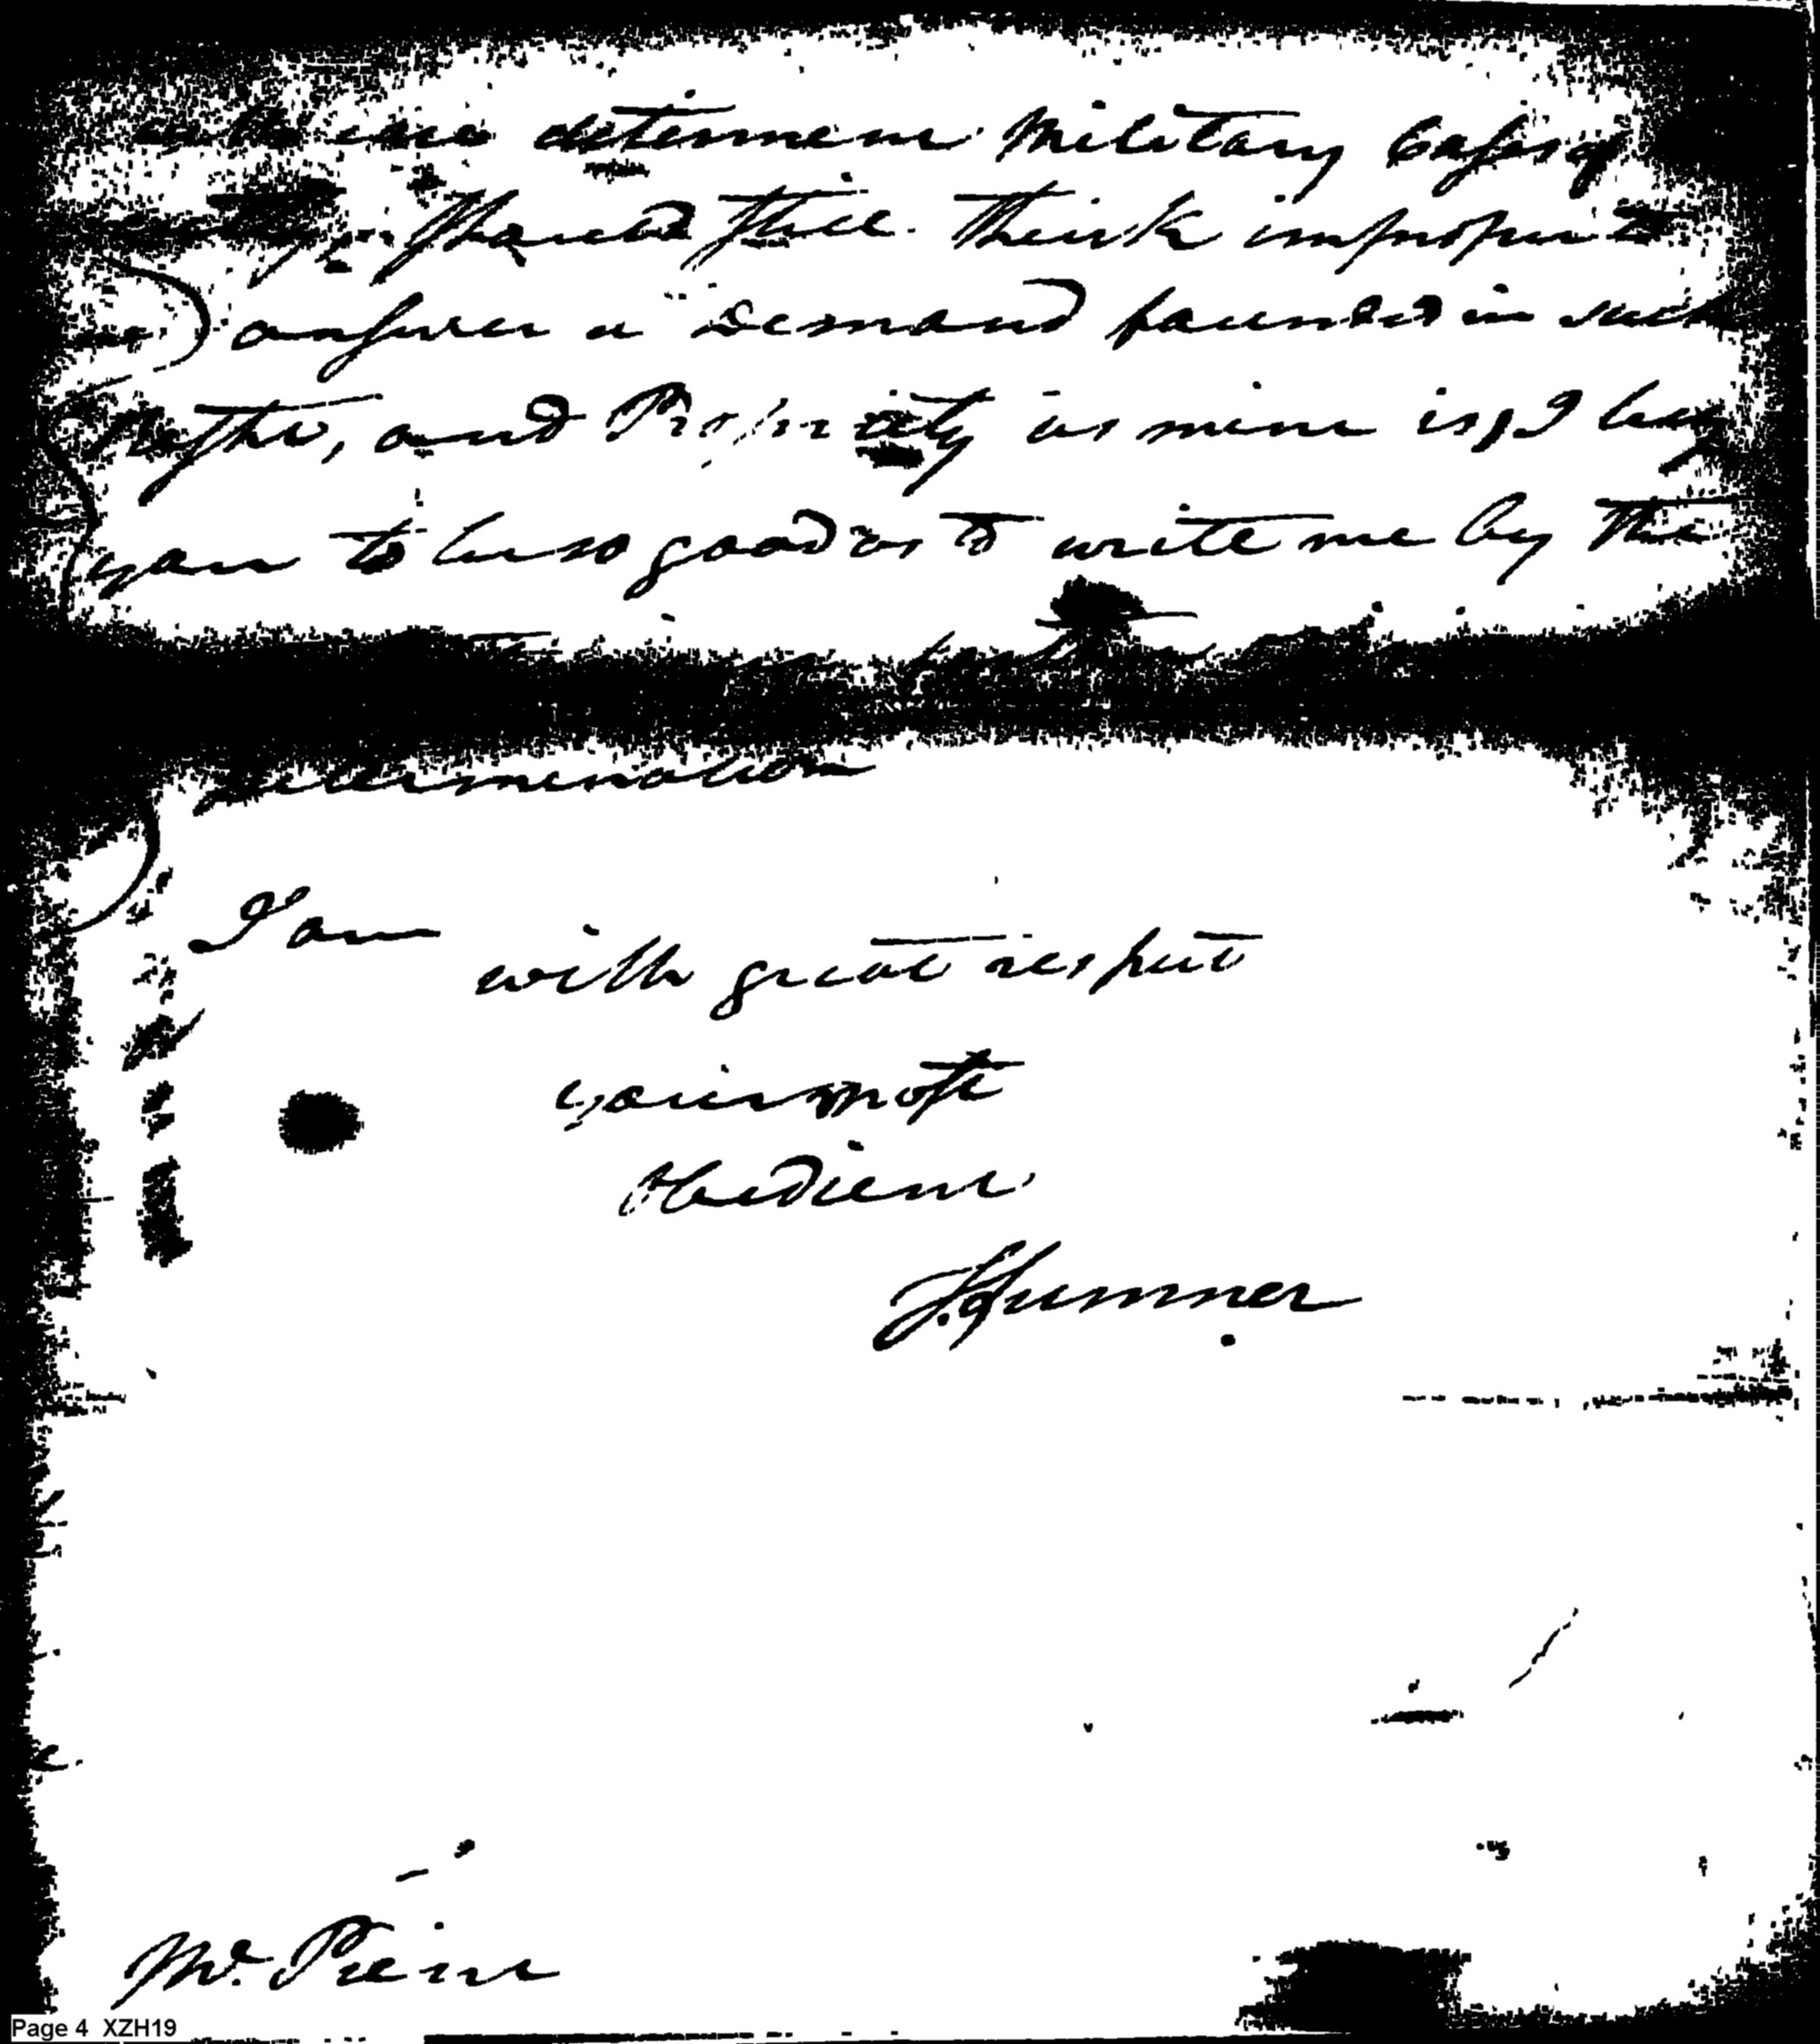 who determine Military Cases of
should still think improper to
answer a Demand founded in such
Justice, and Propriety as mine is, I beg
you to be so good as to write me by the
determination
I am
with great respect
your most
Obedient
J. Sumner
Mr. Peirce
Page 4 XZH19